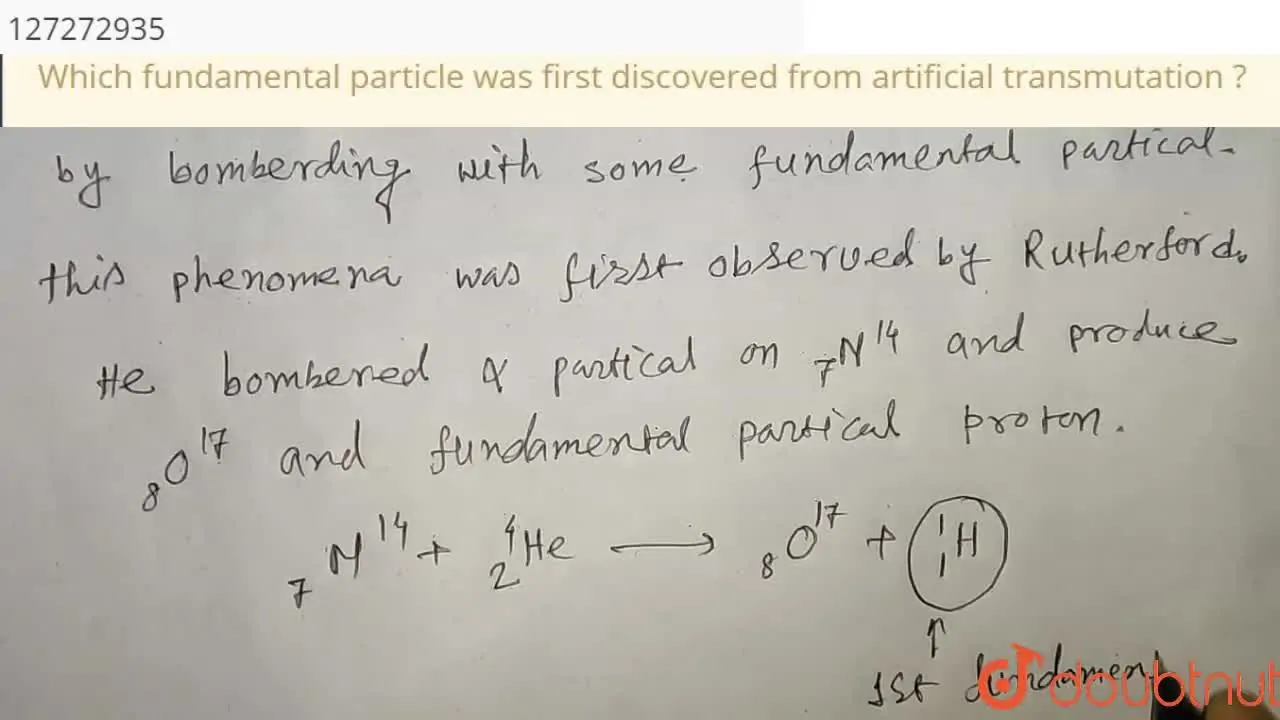 127272935
Which fundamental particle was first discovered from artificial transmutation ?
by bomberding with some fundamental partical.
this phenomena was first observed by Rutherford.
He bombered α partical on ₇N¹⁴ and produce
₈O¹⁷ and fundamental partical proton.
₇N¹⁴ + ⁴₂He ⟶ ₈O¹⁷ + ¹₁H
↑
1st fundament
doubtnut